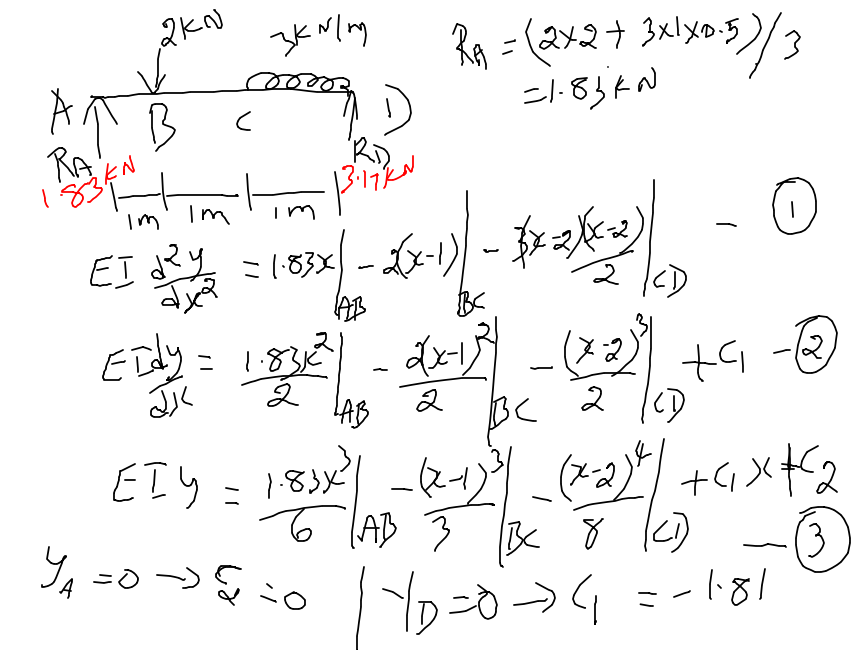 2KN
3KN/m
A B C D
RA RD
1.83KN 3.17KN
1m 1m 1m
RA = (2x2 + 3x1x0.5)/3
= 1.83KN
EI d²y/dx² = 1.83x |AB - 2(x-1) |BC - 3(x-2)(x-2)/2 |CD - ①
EI dy/dx = 1.83x²/2 |AB - 2(x-1)²/2 |BC - (x-2)³/2 |CD + C₁ - ②
EIy = 1.83x³/6 |AB - (x-1)³/3 |BC - (x-2)⁴/8 |CD + C₁x + C₂
- ③
yA = 0 → C₂ = 0 | yD = 0 → C₁ = -1.81